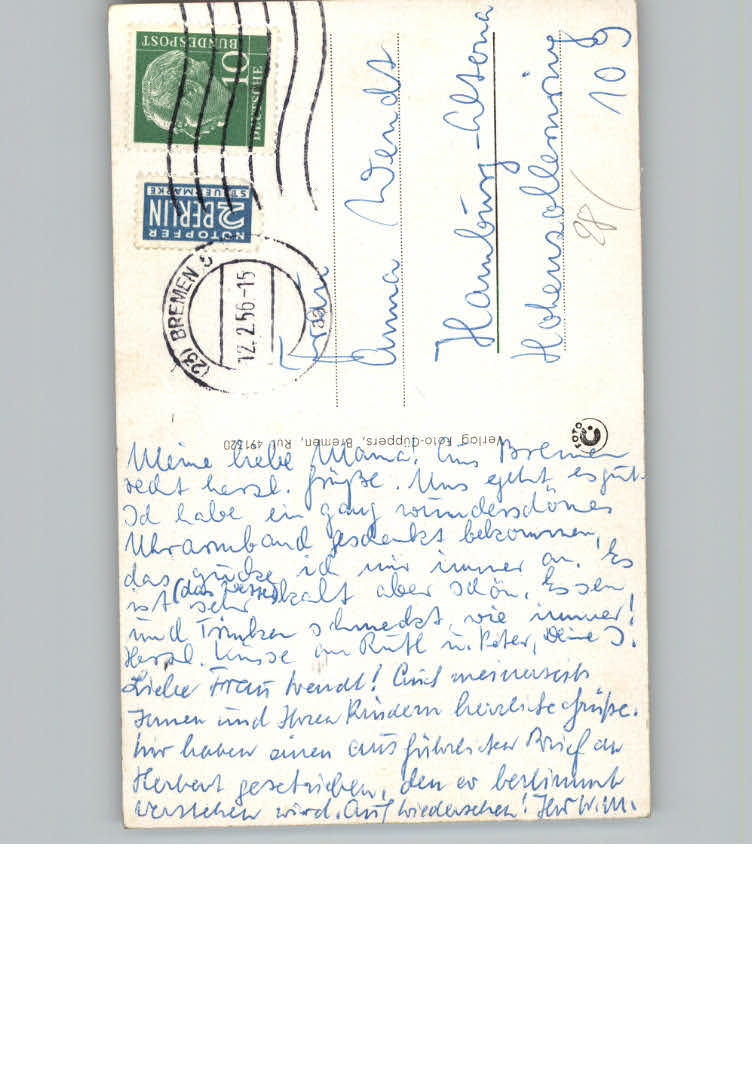 DEUTSCHE
BUNDESPOST
10
NOTOPFER
2 BERLIN
STEUERMARKE
(23) BREMEN 5
12.2.56-15
Frau
Anna Wendt
Hamburg-Altona
Hohenzollernring
109
28/
Verlag Foto-Cüppers, Bremen, Ruf 491320
FOTO
Meine liebe Mama! Aus Bremen
recht herzl. Grüße. Uns geht es gut.
Ich habe ein ganz wunderschönes
Uhrarmband geschenkt bekommen,
das gucke ich mir immer an. Es
ist sehr (das Wetter) kalt aber schön. Essen
und Trinken schmeckt, wie immer!
Herzl. Küsse an Ruth u. Peter, Deine I.
Liebe Frau Wendt! Auch meinerseits
Ihnen und Ihren Kindern herzliche Grüße.
Wir haben einen ausführlichen Brief an
Herbert geschrieben, den er bestimmt
verstehen wird. Auf Wiedersehen! Ihr W.M.